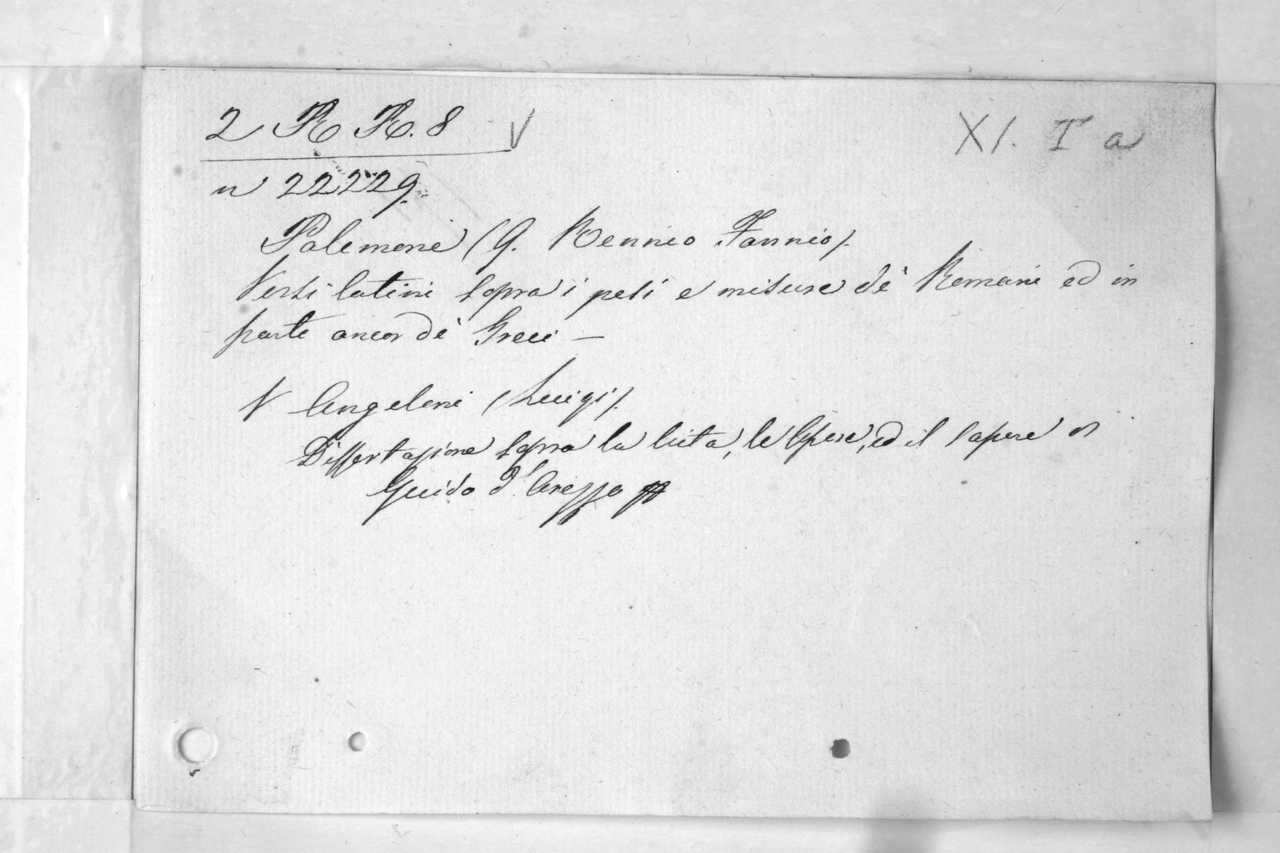 2 R R. 8 V
XI. I a
n 22229
Palemone (Q. Rennio Fannio).
Versi latini sopra i pesi e misure de' Romani ed in
parte ancor de' Greci —
V Angeloni (Luigi).
Dissertazione sopra la vita, le Opere, ed il sapere di
Guido d'Arezzo